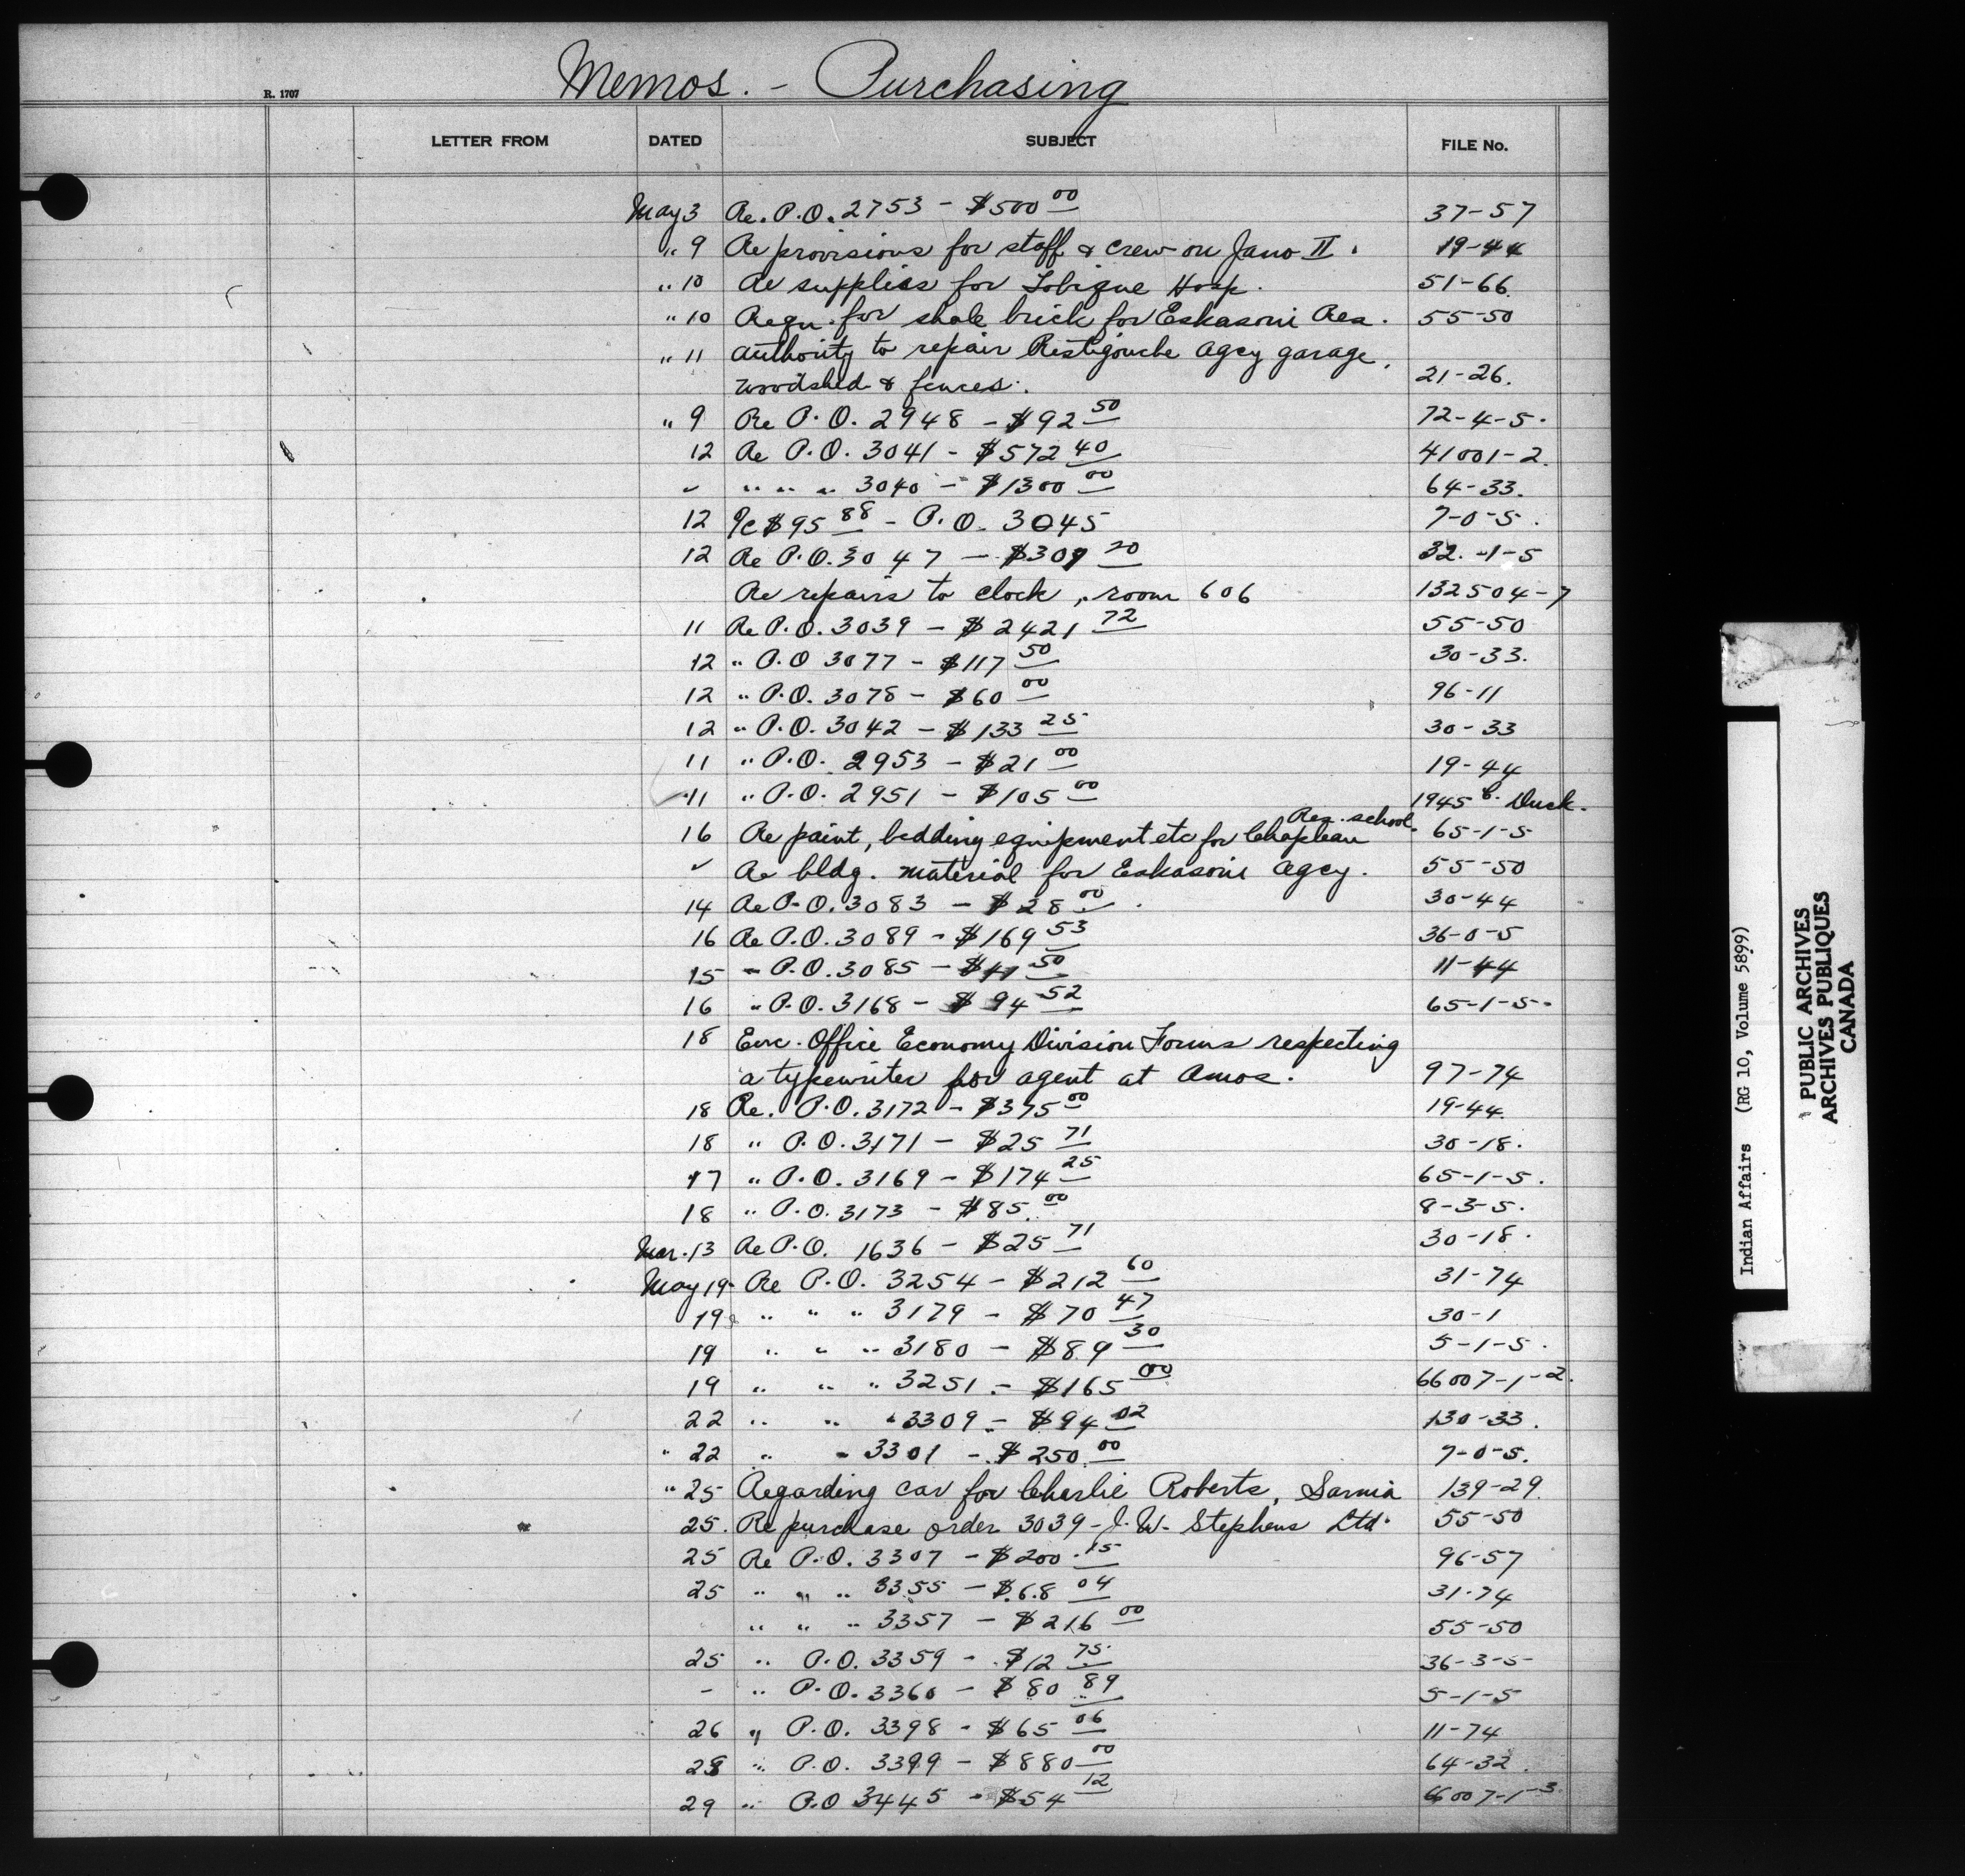 Memos. - Purchasing
R. 1707
LETTER FROM DATED SUBJECT FILE No.
May 3 Re. P.O. 2753 - $500 00 37-57
" 9 Re provisions for staff & crew on Jano II. 19-44
" 10 Re supplies for Tobique Hosp. 51-66.
" 10 Requ. for shale brick for Eskasoni Res. 55-50
" 11 Authority to repair Restigouche Agcy garage,
woodshed & fences. 21-26.
" 9 Re P.O. 2948 - $92 50 72-4-5.
12 Re P.O. 3041 - $572 40 41001-2.
✓ " " " 3040 - $1300 00 64-33.
12 Re $95 88 - P.O. 3045 7-0-5.
12 Re P.O. 3047 - $309 20 32.-1-5
Re repairs to clock, room 606 132504-7
11 Re P.O. 3039 - $2421 72 55-50
12 " P.O 3077 - $117 50 30-33.
12 " P.O. 3078 - $60 00 96-11
12 " P.O. 3042 - $133 25 30-33
11 " P.O. 2953 - $21 00 19-44
11 " P.O. 2951 - $105 00 1945 Duck.
Res. school.
16 Re paint, bedding equipment etc for Chapleau 65-1-5
✓ Re bldg. material for Eskasoni Agcy. 55-50
14 Re P.O. 3083 - $28 00. 30-44
16 Re P.O. 3089 - $169 53 36-0-5
15 " P.O. 3085 - $11 50 11-44
16 " P.O. 3168 - $94 52 65-1-5.
18 Enc. Office Economy Division Forms respecting
a typewriter for agent at Amos. 97-74
18 Re. P.O. 3172 - $375 00 19-44.
18 " P.O. 3171 - $25 71 30-18.
17 " P.O. 3169 - $174 25 65-1-5.
18 " P.O. 3173 - $85. 00 8-3-5.
Mar. 13 Re P.O. 1636 - $25 71 30-18.
May 19 Re P.O. 3254 - $212 60 31-74
19 " " " 3179 - $70 47 30-1
19 " " " 3180 - $89 30 5-1-5.
19 " " " 3251 - $165 00 66007-1-2.
22 " " " 3309 - $94 02 130-33.
" 22 " " 3301 - $250. 00 7-0-5.
" 25 Regarding car for Charlie Roberts, Sarnia 139-29.
25. Re purchase order 3039 - J. W. Stephens Ltd. 55-50
25 Re P.O. 3307 - $200.15 96-57
25 " " " 3355 - $68 04 31-74
" " " 3357 - $216 00 55-50
25 " P.O. 3359 - $12 75 36-3-5
- " P.O. 3360 - $80 89 5-1-5
26 " P.O. 3398 - $65 06 11-74
28 " P.O. 3399 - $880 00 64-32.
29 " P.O 3445 - $54 12 66007-1-3.
Indian Affairs (RG 10, Volume 5899)
PUBLIC ARCHIVES
ARCHIVES PUBLIQUES
CANADA